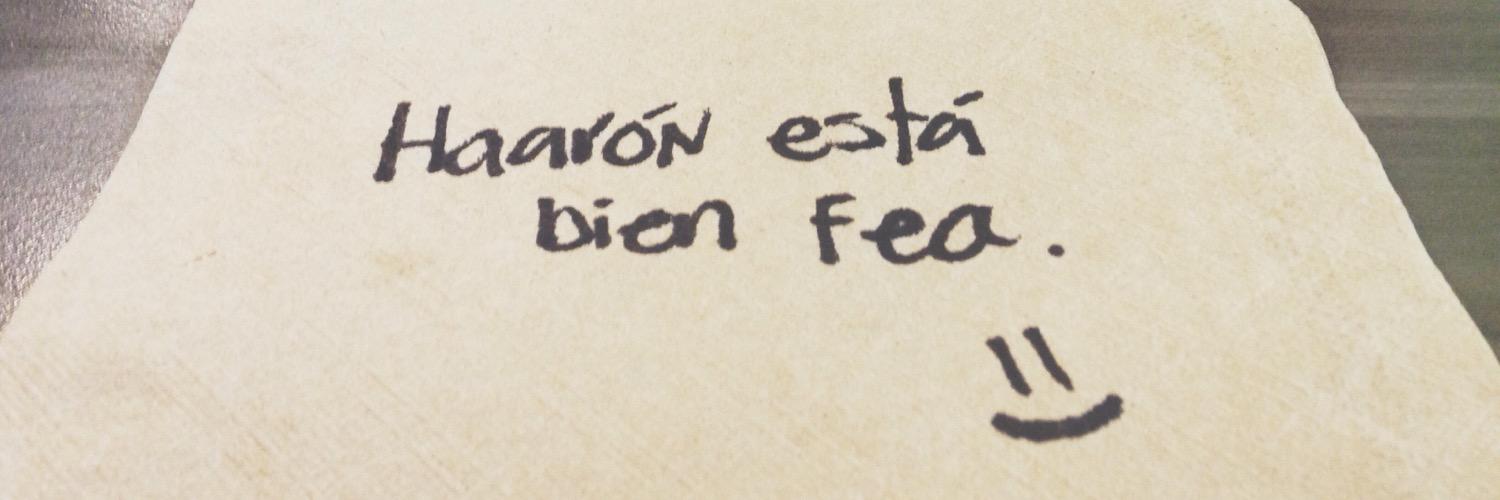 Haarón está
bien fea.